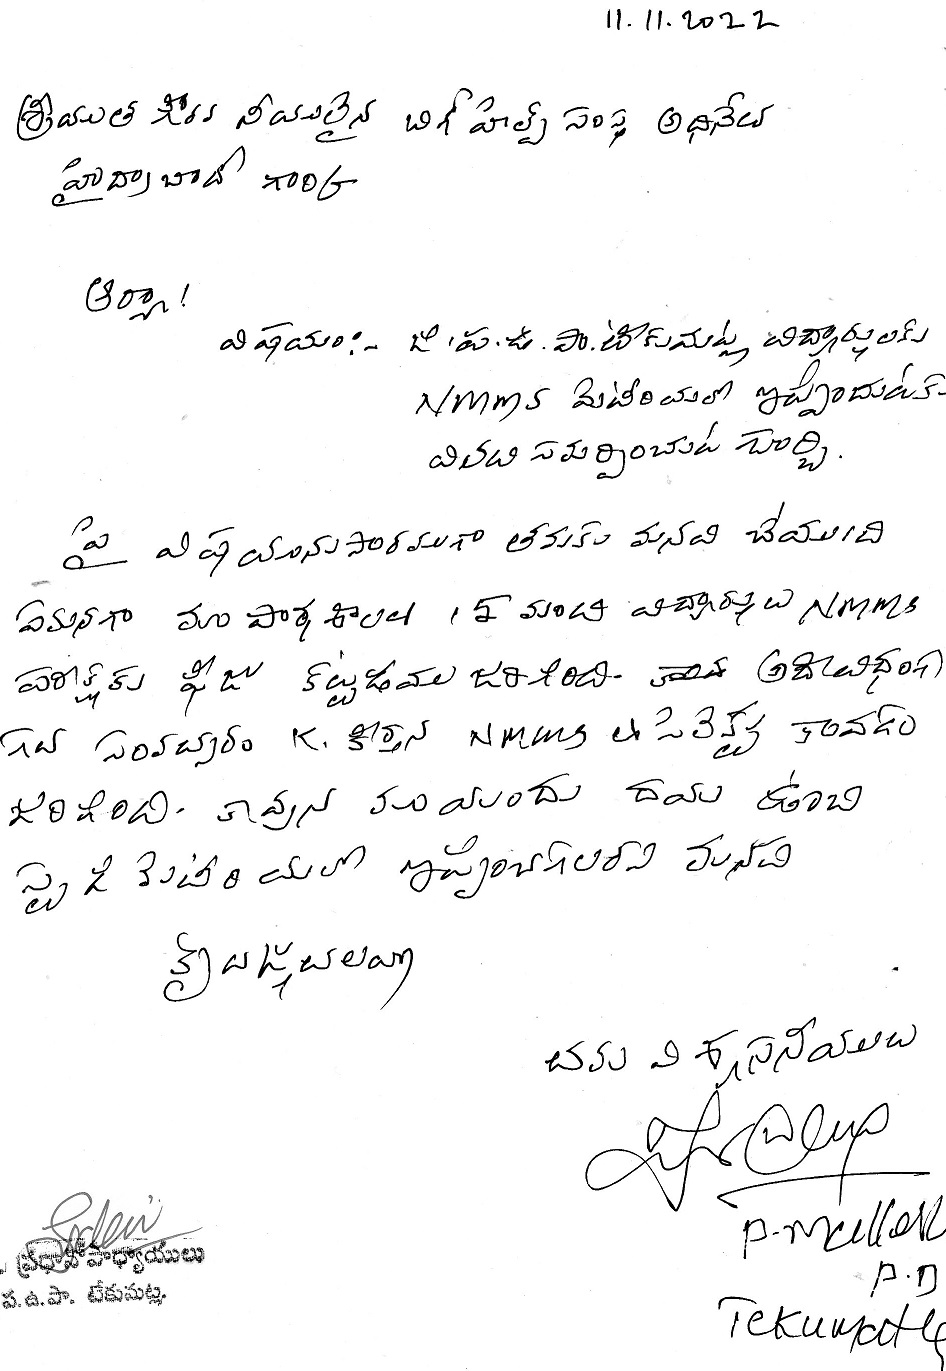 11.11.2022
శ్రీయుత గౌరవనీయులైన బిగ్ హెల్ప్ సంస్థ అధినేత
హైద్రాబాద్ గారికి
ఆర్యా!
విషయం:- జి.ప.ఉ.పా. టేకుమట్ల విద్యార్థులకు
NMMS మెటీరియల్ ఇప్పించుటకు
వినతి సమర్పించుట గూర్చి.
పై విషయానుసారముగా తమకు మనవి చేయునది
ఏమనగా మా పాఠశాలలో 15 మంది విద్యార్థులు NMMS
పరీక్షకు ఫీజు కట్టడము జరిగింది. అదేవిధంగా
గత సంవత్సరం K. కీర్తన NMMS లో సెలెక్ట్ కావడం
జరిగింది. కావున మా యందు దయ ఉంచి
స్టడీ మెటీరియల్ ఇప్పించగలరని మనవి
కృతజ్ఞతలతో
తమ విశ్వసనీయులు
P. Mallesh
P.D
Tekumatla
ప్రధానోపాధ్యాయులు
ప.ఉ.పా. టేకుమట్ల.